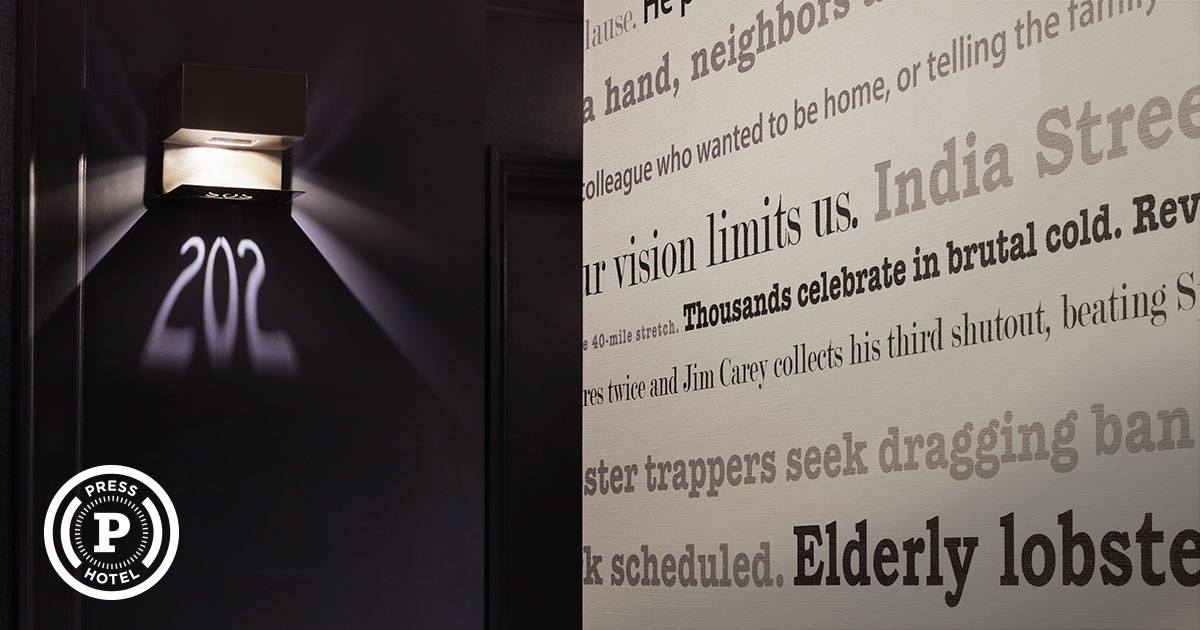 202
PRESS
P
HOTEL
lause. He p
a hand, neighbors
colleague who wanted to be home, or telling the family
ur vision limits us. India Stree
e 40-mile stretch. Thousands celebrate in brutal cold. Rev
res twice and Jim Carey collects his third shutout, beating S
ster trappers seek dragging ban
k scheduled. Elderly lobste